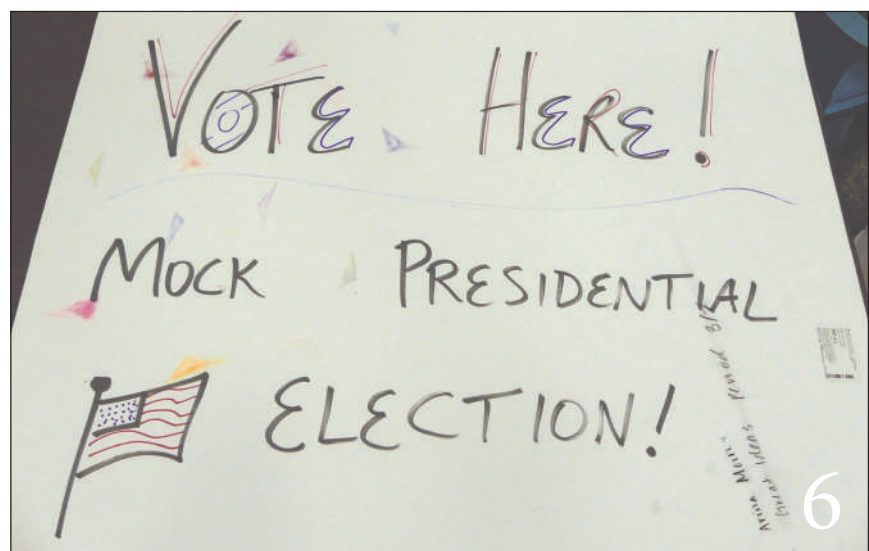 VOTE HERE!
MOCK PRESIDENTIAL
ELECTION!
Period 3/2
Great Ideas
6